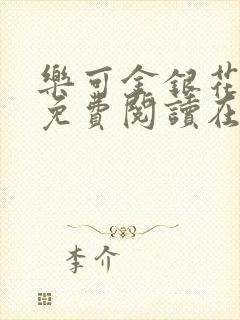 樂可金銀花
免費閱讀在
李介